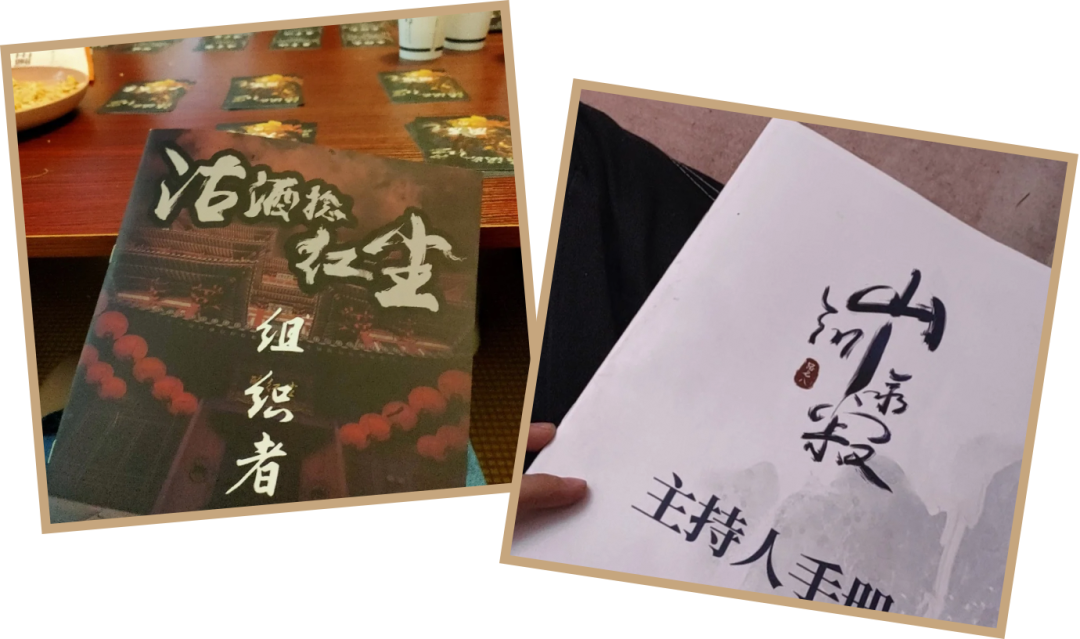 沽酒捻
红尘
组织者
山河永寂
主持人手册